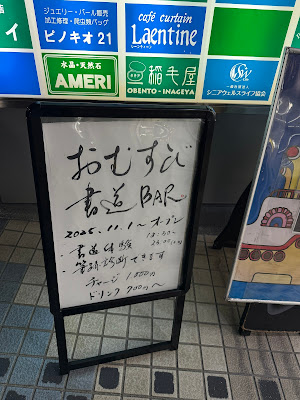 ジュエリー・パール販売
加工修理・爬虫類バッグ
ピノキオ21
café curtain
Laentine
レーヌティーヌ
水晶・天然石
AMERI
稲毛屋
OBENTO-INAGEYA
一般社団法人
シニアウェルスライフ協会
おむすび
書道BAR
2025.11.1〜オープン
18:30〜
・書道体験
・筆跡診断できます
チャージ 1,800円
ドリンク 700円〜